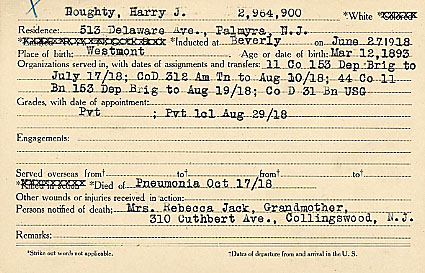 Noughty, Harry J. 2,964,900 *White *Colored
Residence: 513 Delaware Ave., Palmyra, N.J.
*Inducted at Beverly on June 27 1918
Place of birth: Westmont Age or date of birth: Mar 12, 1893
Organizations served in, with dates of assignments and transfers: 11 Co 153 Dep Brig to
July 17/18; CoD 312 Am Tn to Aug 10/18; 44 Co 11
Bn 153 Dep Brig to Aug 19/18; Co D 31 Bn USG
Grades, with date of appointment:
Pvt ; Pvt 1cl Aug 29/18
Engagements:
Served overseas from† to† from† to†
*Killed in action *Died of Pneumonia Oct 17/18
Other wounds or injuries received in action:
Persons notified of death: Mrs. Rebecca Jack, Grandmother,
310 Cuthbert Ave., Collingswood, N.J.
Remarks:
*Strike out words not applicable. †Dates of departure from and arrival in the U. S.